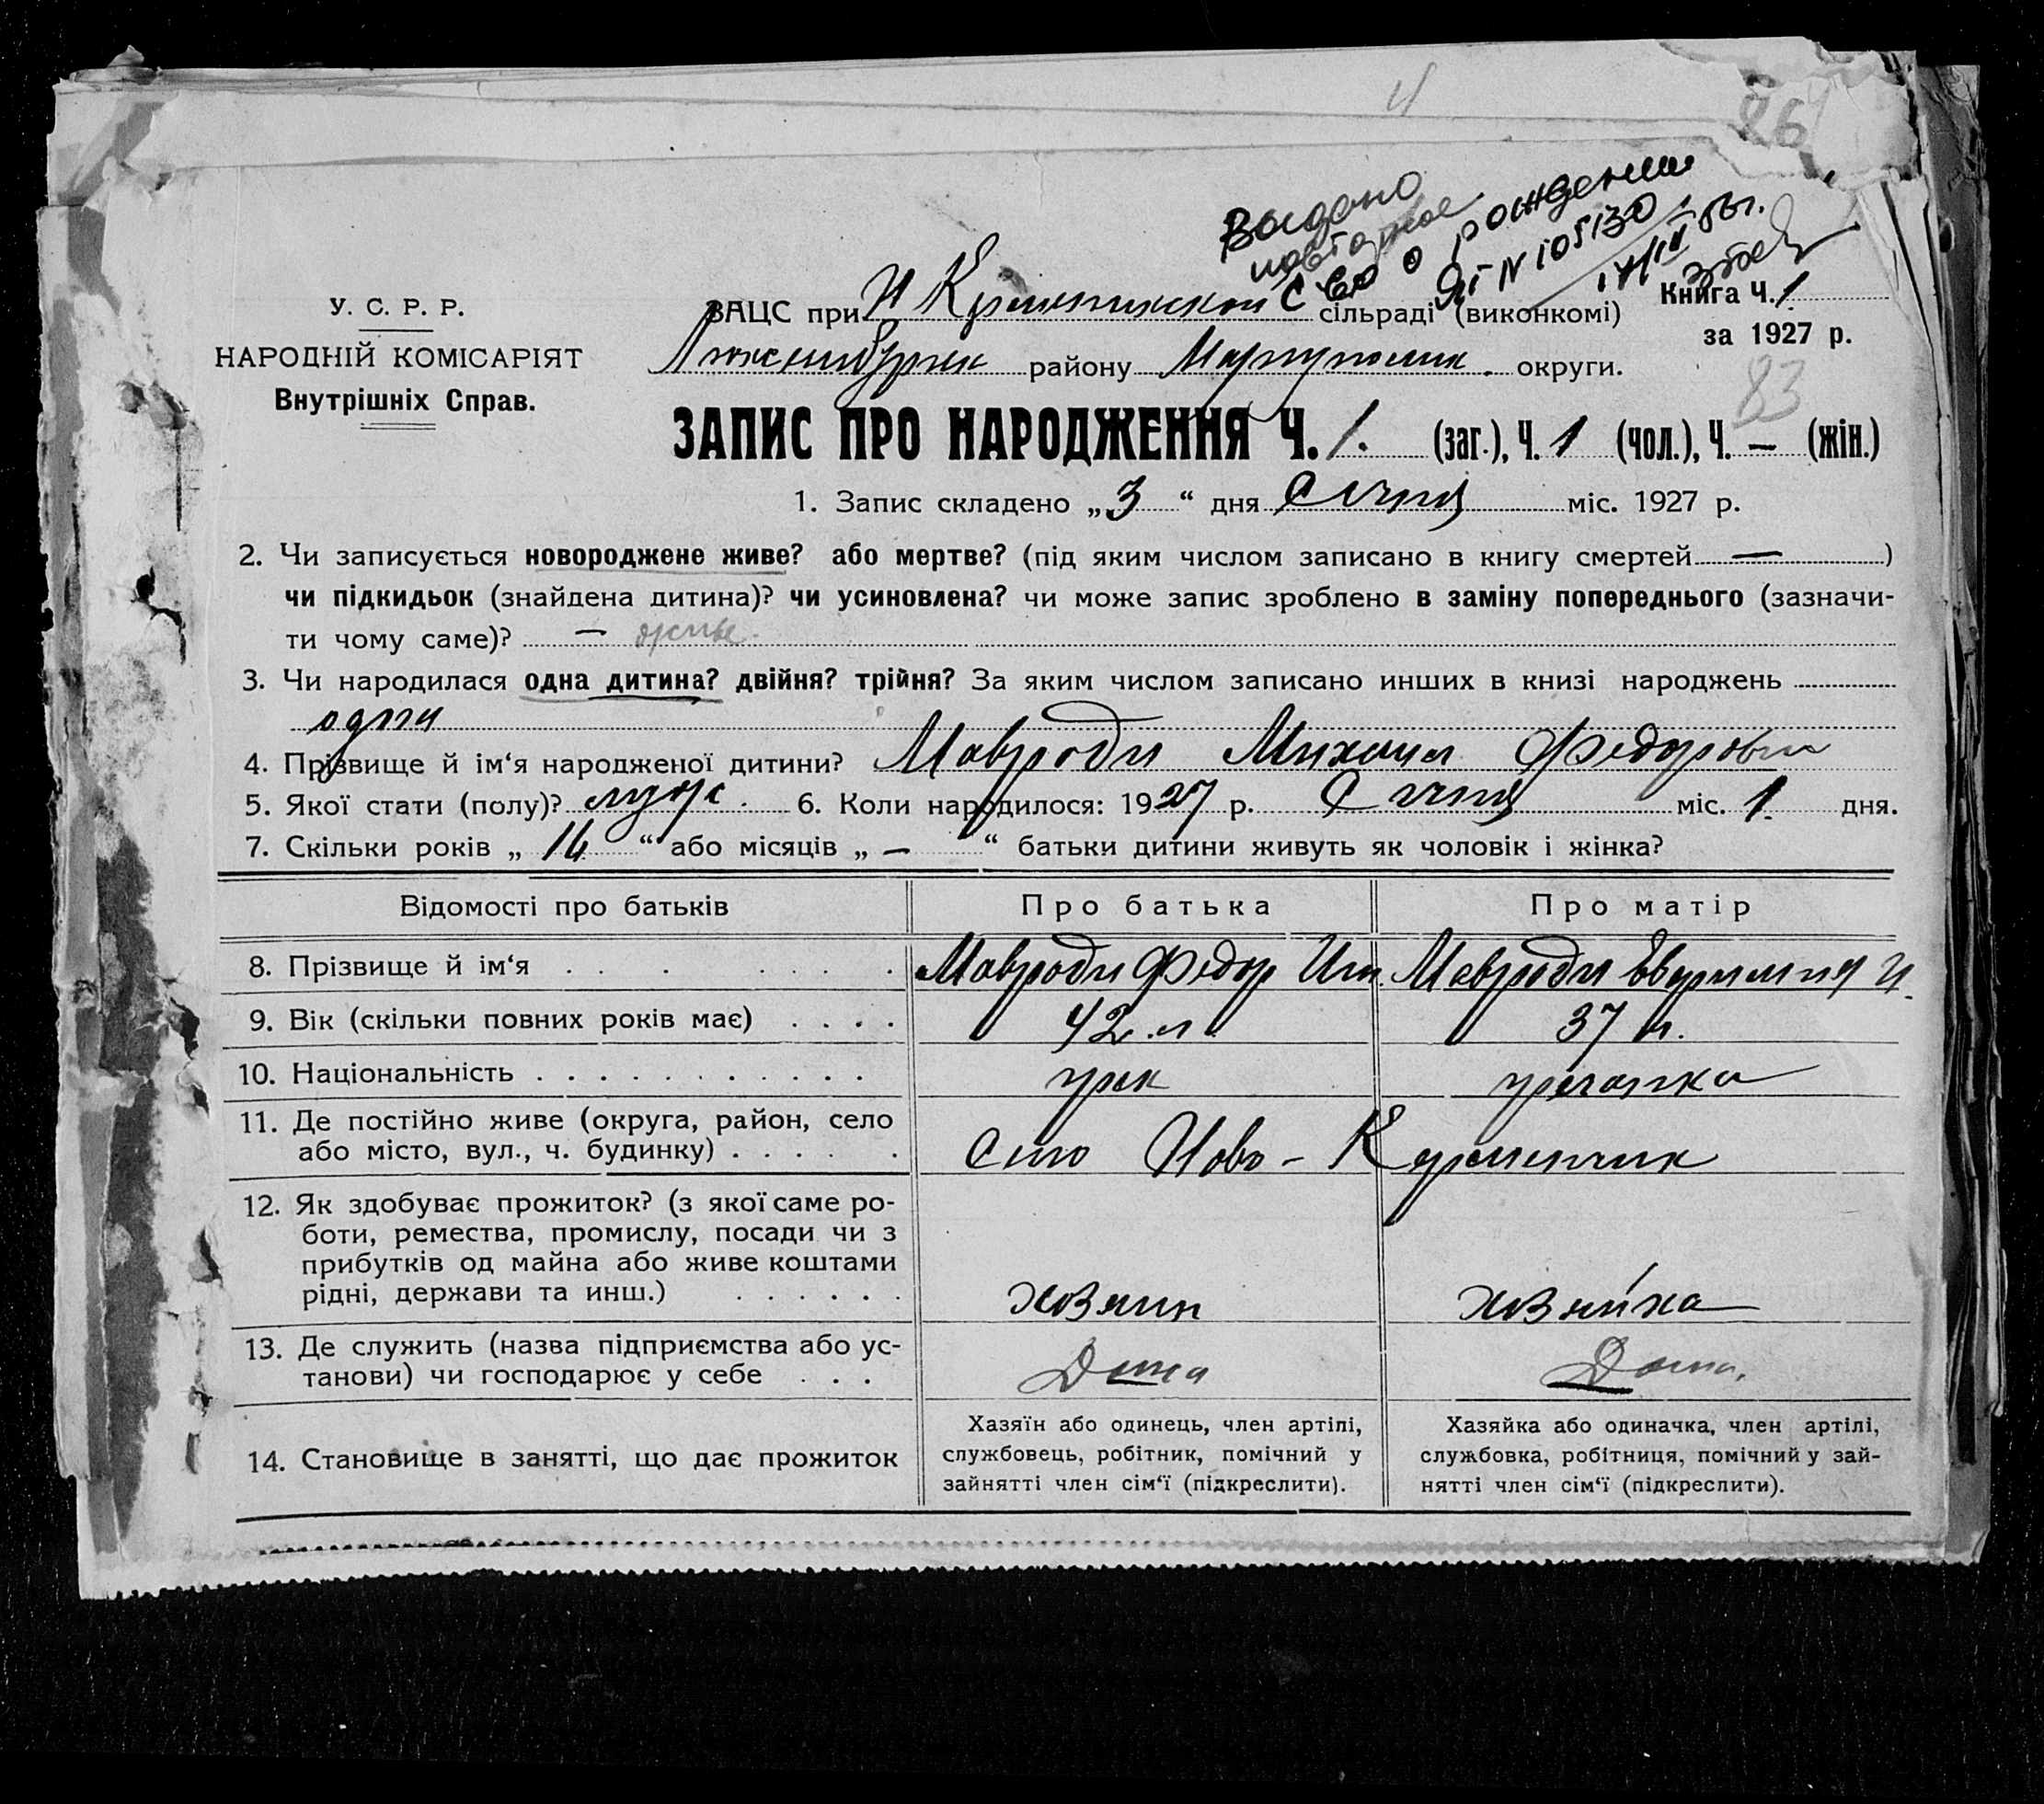 4
86
Выдано
повторное
с-во о рождении
ЯГ N 105130
У. С. Р. Р.
НАРОДНІЙ КОМІСАРІЯТ
Внутрішніх Справ.
ЗАЦС при Н Кременчикской сільраді (виконкомі)
району Мариупольск. округи.
Книга Ч. 1
за 1927 р.
83
ЗАПИС ПРО НАРОДЖЕННЯ Ч. 1. (заг.), Ч. 1 (чол.), Ч. — (жін.)
1. Запис складено „3“ дня Січня міс. 1927 р.
2. Чи записується новороджене живе? або мертве? (під яким числом записано в книгу смертей — )
чи підкидьок (знайдена дитина)? чи усиновлена? чи може запис зроблено в заміну попереднього (зазначи-
ти чому саме)? — живе.
3. Чи народилася одна дитина? двійня? трійня? За яким числом записано инших в книзі народжень
одна
4. Прізвище й ім‘я народженої дитини? Мавроди Михаил Федорович
5. Якої стати (полу)? муж. 6. Коли народилося: 1927 р. Січня міс. 1 дня.
7. Скільки років „ 14 “ або місяців „ — “ батьки дитини живуть як чоловік і жінка?
Відомості про батьків Про батька Про матір
8. Прізвище й ім‘я Мавроди Федор Ил. Мавроди Евфимия И.
9. Вік (скільки повних років має) 42 л. 37 л.
10. Національність грек гречанка
11. Де постійно живе (округа, район, село
або місто, вул., ч. будинку) Село Ново-Кременчик
12. Як здобуває прожиток? (з якої саме ро-
боти, ремества, промислу, посади чи з
прибутків од майна або живе коштами
рідні, держави та инш.) хозяин хозяйка
13. Де служить (назва підприємства або ус-
танови) чи господарює у себе Дома Дома.
14. Становище в занятті, що дає прожиток
Хазяїн або одинець, член артілі,
службовець, робітник, помічний у
зайнятті член сім‘ї (підкреслити).
Хазяйка або одиначка, член артілі,
службовка, робітниця, помічний у зай-
нятті член сім‘ї (підкреслити).